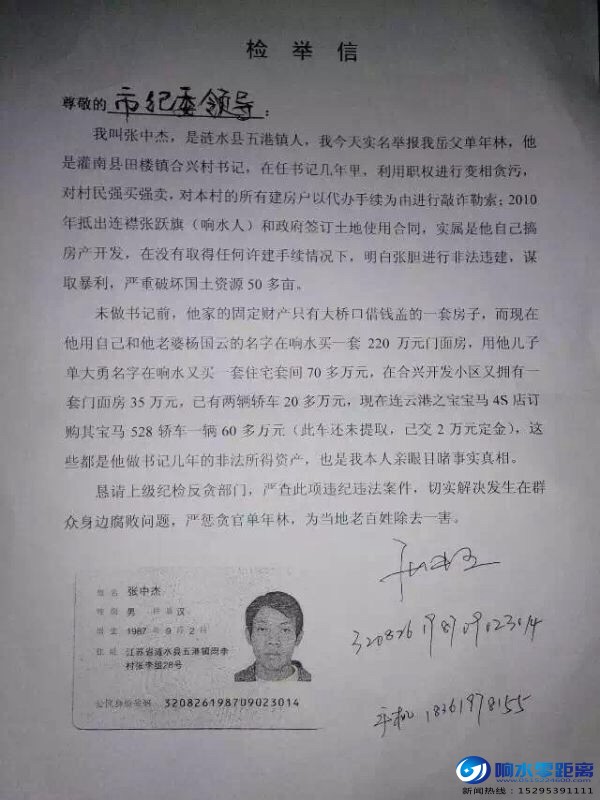 检 举 信
尊敬的 市纪委领导：
我叫张中杰，是涟水县五港镇人，我今天实名举报我岳父单年林，他
是灌南县田楼镇合兴村书记，在任书记几年里，利用职权进行变相贪污，
对村民强买强卖，对本村的所有建房户以代办手续为由进行敲诈勒索；2010
年抵出连襟张跃旗（响水人）和政府签订土地使用合同，实属是他自己搞
房产开发，在没有取得任何许建手续情况下，明白张胆进行非法违建，谋
取暴利，严重破坏国土资源 50 多亩。
未做书记前，他家的固定财产只有大桥口借钱盖的一套房子，而现在
他用自己和他老婆杨国云的名字在响水买一套 220 万元门面房，用他儿子
单大勇名字在响水又买一套住宅套间 70 多万元，在合兴开发小区又拥有一
套门面房 35 万元，已有两辆轿车 20 多万元，现在连云港之宝宝马 4S 店订
购其宝马 528 轿车一辆 60 多万元（此车还未提取，已交 2 万元定金），这
些都是他做书记几年的非法所得资产，也是我本人亲眼目睹事实真相。
恳请上级纪检反贪部门，严查此项违纪违法案件，切实解决发生在群
众身边腐败问题，严惩贪官单年林，为当地老百姓除去一害。
姓名 张中杰
性别 男 民族 汉
出生 1987 年 9 月 2 日
住址 江苏省涟水县五港镇闵李
村张李组28号
公民身份号码 320826198709023014
320826198709023014
手机 18361978155
响水零距离
新闻热线：15295391111